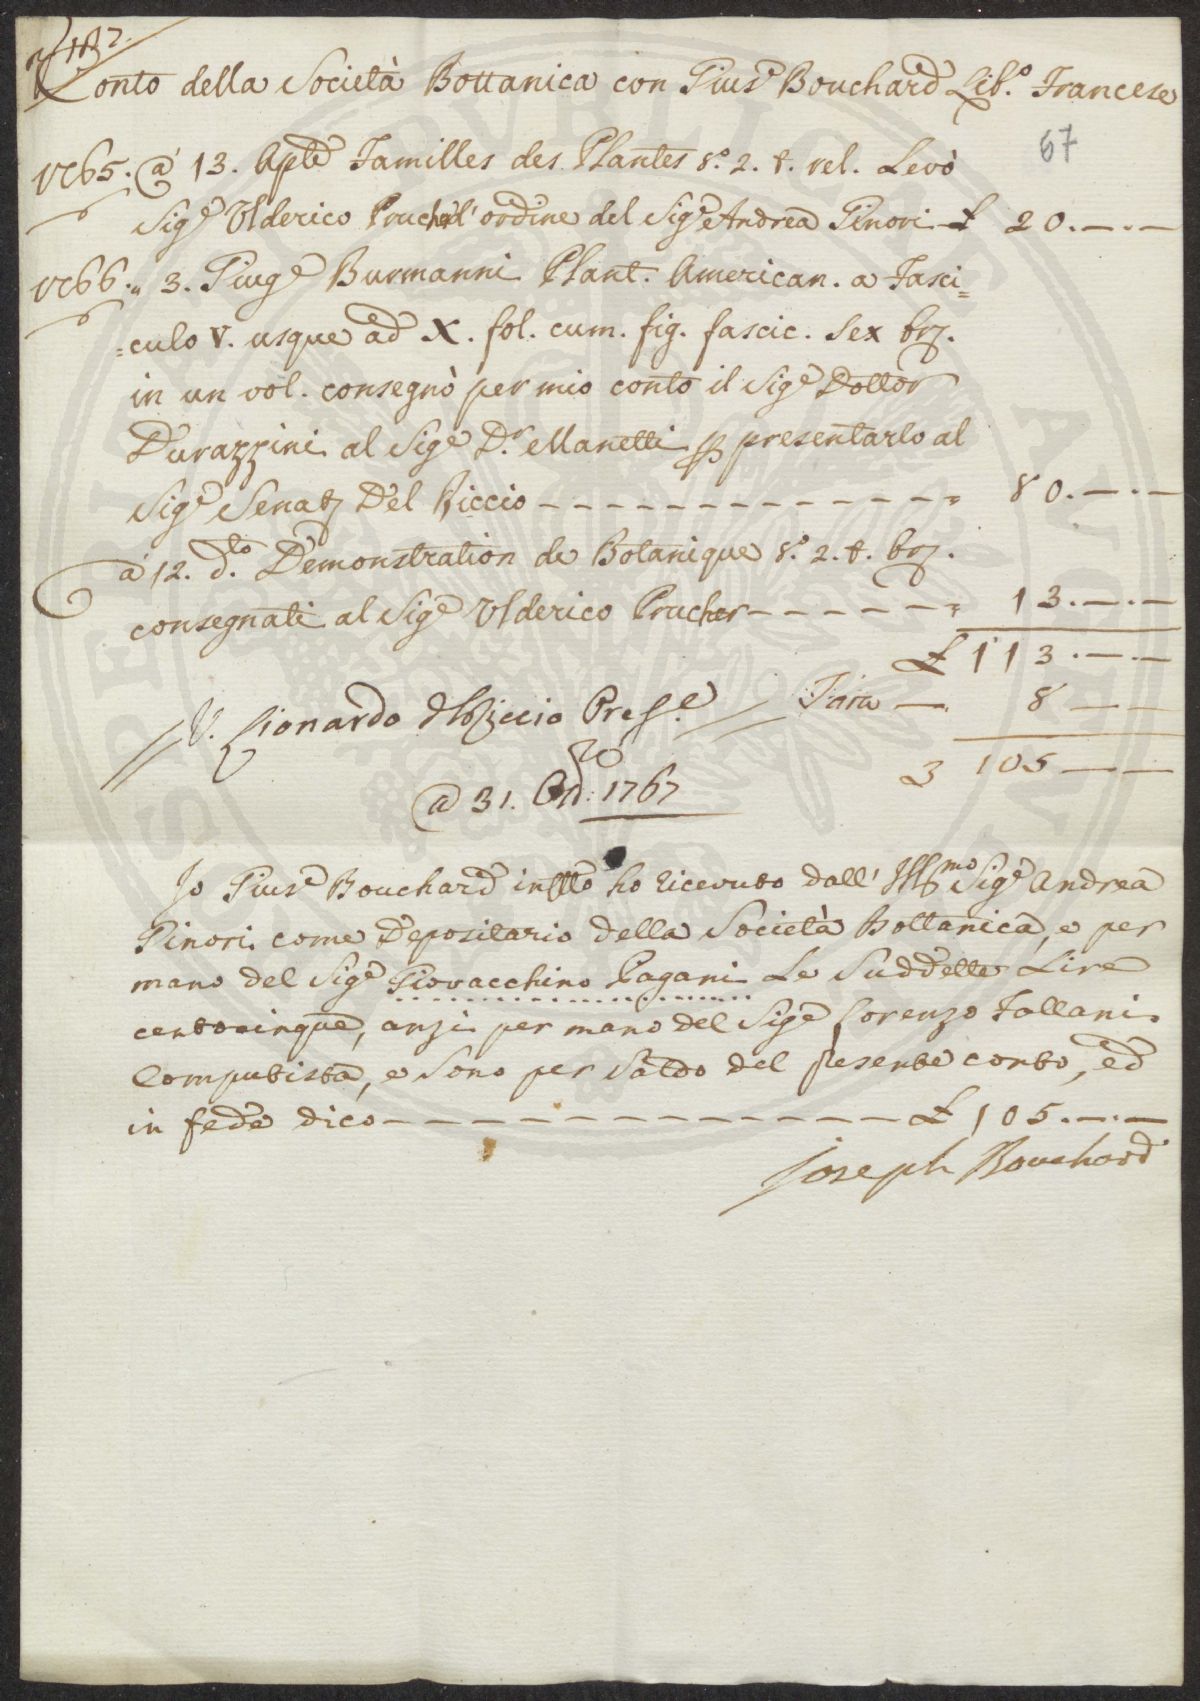 137.
Conto della Società Bottanica con Gius.e Bouchard Lib.o Francese
67
1765. @ 13. Aple Familles des Plantes 8.o 2. t. rel. Levò
Sig.e Ulderico Prucher d'ordine del Sig.e Andrea Ginori £ 20.—.—
1766. „ 3. Giug.e Burmanni Plant. American. a Fasci=
=culo V. usque ad X. fol. cum. fig. fascic. sex br.
in un vol. consegnò per mio conto il Sig.e Dottor
Durazzini al Sig.e D.r Manetti p presentarlo al
Sig.e Senat. Del Riccio - - - - - - - - - - - - = 80.—.—
a 12. d.to Demonstration de Botanique 8.o 2. t. br.
consegnati al Sig.e Ulderico Prucher - - - - - - = 13.—.—
£ 113.—.—
V. Lionardo del Riccio Pres.e Tara — 8 — —
105 — —
@ 31. 1767
Io Gius.e Bouchard ho ricevuto dall' Ill.mo Sig.e Andrea
Ginori come Depositario della Società Bottanica, e per
mano del Sig.e Giovacchino Pagani Le Suddette Lire
centocinque, anzi per mano del Sig.e Lorenzo Fallani
Computista, e sono per saldo del presente conto, ed
in fede dico - - - - - - - - - - - - - - £ 105.—.—
Joseph Bouchard